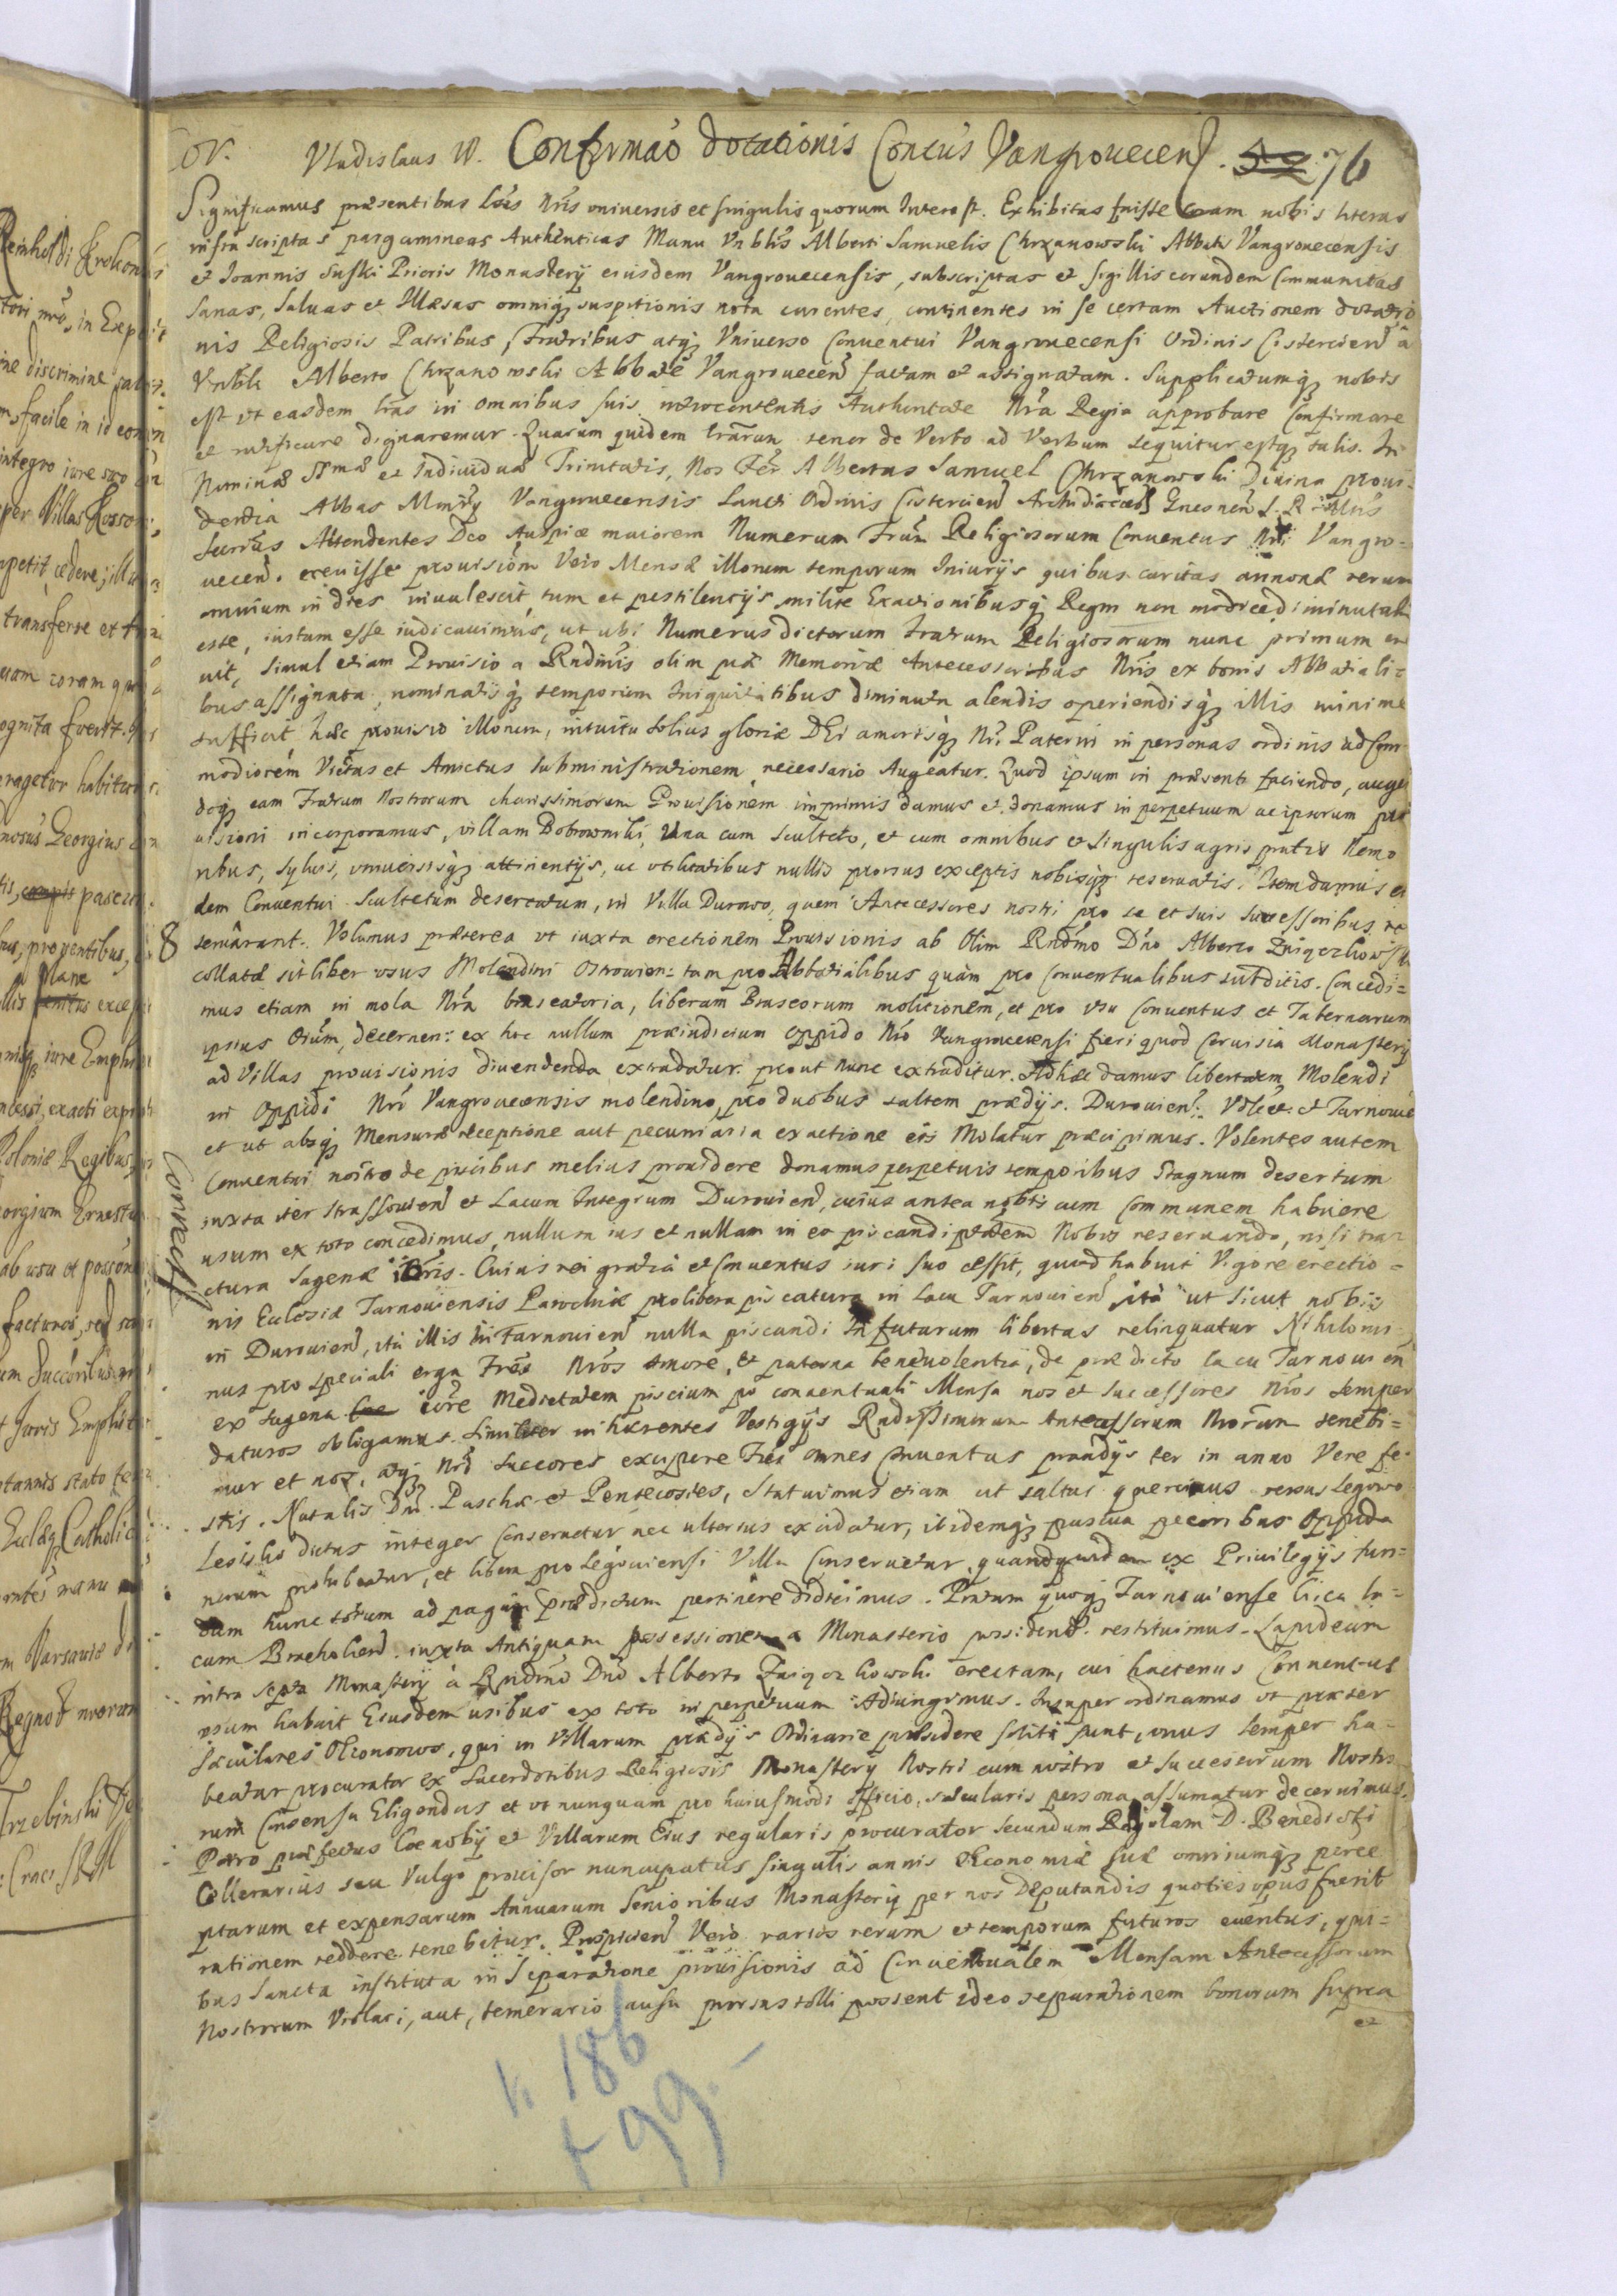 or. Vladislaus IV. Confirmao dotationis Contus Vangrouecens. 76
Significamus præsentibus Lris Nris vniuersis et singulis quorum Interest. Exhibitas fuisse coram nobis literas
infra scriptas pargamineas Authenticas Manu Vnblis Alberti Samuelis Chrzanowski Abbatis Vangrouecensis
et Ioannis Suski Prioris Monastery eiusdem Vangrouecensis, subscriptas et sigillis eorundem Communitas
sanas, saluas et Illæsas omniq suspitionis nota carentes, continentes in se certam Auctionem dotatio
nis Religiosis Patribus, Fratribus atq Vniuerso Conuentui Vangrouecensi Ordinis Cistercien a
Vnbli Alberto Chrzanowski Abbate Vangrouecen factam et assignatam. Supplicatumq nobis
est vt easdem lras in omnibus suis contentis Authoritate Nra Regia approbare Confirmare
et ratificare dignaremur. Quarum quidem lrarum tenor de Verbo ad Verbum sequitur estq talis. In
Nominæ SSmæ et Indiuiduæ Trinitatis, Nos Fer Albertus Samuel Chrzanowski Diuina proui-
dentia Abbas Mnry Vangrouecensis Sancti Ordinis Cistercien Archidiæces Gnesnen S. R. Mtis
Secrius Attendentes Deo Auspice maiorem Numerum Frum Religiosorum Conuentus Nri Vangro-
uecen. creuisse prouisiom Vero Mensæ illorum temporum Iniurijs quibus caritas annonæ rerum
omnium in dies inualescit, tum et pestilentijs, milite Exactionibusq Regni non modice diminutam
esse, iustam esse iudicauimus, ut ubi Numerus dictorum Fratrum Religiosorum nunc primum cre
uit, simul etiam Prouisio a Rndmis olim piæ Memoriæ Antecessoribus Nris ex bonis Abbatiali-
bus assignata, nominatisq temporum Iniquitatibus diminuta alendis operiendisq illis minime
sufficit hæc prouisio illorum, intuitu solius gloriæ DEi amorisq Nri Paterni in personas ordinis ad com
modiorem Victus et Amictus subministrationem necessario Augeatur. Quod ipsum in præsenti faciendo, augen
doq eam Fratrum Nostrorum charissimorum Prouisionem imprimis damus et donamus in perpetuum ac ipsorum pro
uisioni incorporamus, villam Bobrowniki, Vna cum sculteto, et cum omnibus et singulis agris pratis Nemo
ribus, syluis, vniuersisq attinentijs, ac vtilitatibus nullis prorsus exceptis nobisq reseruatis. Item damus ei
dem Conuentui Scultetum desertatum, in Villa Durowo, quem Antecessores nostri pro se et suis successoribus re
8 seruarant. Volumus præterea vt iuxta erectionem Prouisionis ab Olim Rndmo Dno Alberto Zaigrzkowski
collatæ sit liber vsus Molendini Ostrouien: tam pro Abbatialibus quam pro Conuentualibus subditis. Concedi-
mus etiam in mola Nra braseatoria, liberam Braseorum molitionem, et pro vsu Conuentus et Tabernarum
ipsius Oium, decernen: ex hoc nullum præiudicium Oppido Nro Vangrouecensi fieri quod Ceruisia Monastery
ad Villas prouisionis diuendenda extradatur prout Nunc extraditur. Adhæc damus libertatem Molendi
in Oppidi Nri Vangrouecensis molendino, pro duobus saltem prædijs. Durouien: et Tarnouie
et ut absq Mensuræ receptione aut pecuniaria exactione eis Molatur præcipimus. Volentes autem
Conuentui nostro de piscibus melius prouidere donamus perpetuis temporibus Stagnum desertum
iuxta iter Strassouien et Lacum Integrum Durouien, cuius antea nobiscum Communem habuere
usum ex toto concedimus, nullum ius et nullam in eo piscandi ptatem Nobis reseruando, nisi tra-
ctura sagenæ. Cuius rei gratia et Conuentus iuri suo cessit, quod habuit Vigore erectio-
nis Ecclesiæ Tarnouiensis Parochiæ pro libera piscatura in Lacu Tarnouien, ita ut sicut nobis
in Durouien, ita illis in Tarnouien nulla piscandi In futurum libertas relinquatur Nihilomi-
nus pro speciali erga Fres Nros Amore, et paterna beneuolentia, de prædicto lacu Tarnouien
ex sagena Medietatem piscium pro conuentuali Mensa nos et successores Nros semper
daturos obligamus. Similiter inhærentes Vestigijs Rndissimorum Antecessorum Nrorum tenebi-
mur et nos, atq Nri Succores excipere Fres omnes Conuentus prandijs ter in anno Vere fe-
stis. Natalis Dni. Paschæ et Pentecostes, Statuimus etiam ut saltus quercinus versus Legowo
dictus integer Conseruetur nec vlterius excidatur, ibidemq pascua pecoribus Oppida
norum prohibeatur, et libera pro Legouiensi Villa Conseruetur, quandoquidem ex Priuilegijs fun-
dum hunc totum ad pagum prædictum pertinere didicimus. Pratum quoq Tarnouiense Circa la-
cum Bracholien. iuxta Antiquam possessionem a Monasterio possidend. restituimus. Lapideam
intra septa Monastery a Rndmo Dno Alberto Zaigrzkowski erectam, cui hactenus Conuentus
vsum habuit Eiusdem usibus ex toto in perpetuum Adiungimus. Insuper ordinamus vt præter
sæculares OEconomos, qui in Villarum prædijs Ordinarie præsidere soliti sunt, vnus semper ha-
beatur procurator ex sacerdotibus Religiosis Monastery Nostri cum nostro et successorum Nostro
rum Consensu Eligendus et vt nunquam pro huiusmodi officio, sæcularis persona assumatur decernimus.
Porro præfectus Cœnobij et Villarum Eius regularis procurator secundum Regulam D. Benedicti
Cellerarius seu Vulgo prouisor nuncupatus singulis annis OEconomiæ suæ omniumq perce
ptarum et expensarum Annuarum Senioribus Monastery per nos Deputandis quoties opus fuerit
rationem reddere tenebitur. Prospicien Vero varios rerum et temporum futuros euentus, qui-
bus sancta instituta in separatione prouisionis ad Conuentualem Mensam Antecessorum
Nostrorum Violari, aut, temerario ausu prorsus tolli possent ideo separationem bonorum supra
et
Correcta
186
99.